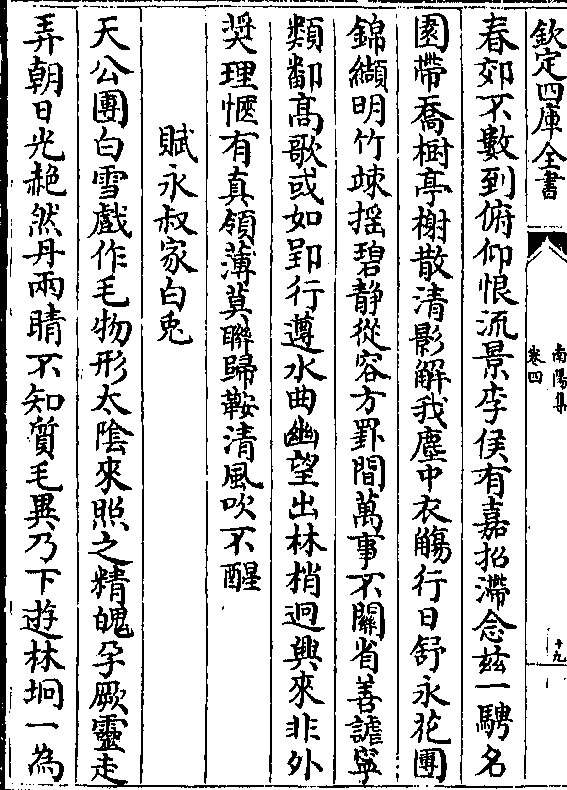 欽定四庫全書
南陽集
卷四
十九
春郊不數到俯仰恨流景李侯有嘉招滯念兹一騁名
園帶喬樹亭榭散清影解我塵中衣觴行日舒永花團
錦纈明竹竦揺碧靜從容方罫間萬事不關省善謔寧
類鄒高歌或如郢行遵水曲幽望出林梢迥興來非外
奨理愜有真領薄莫聨歸鞍清風吹不醒
賦永叔家白兎
天公團白雪戲作毛物形太陰來照之精魄孕厥靈走
弄朝日光赩然丹兩睛不知質毛異乃下遊林坰一為